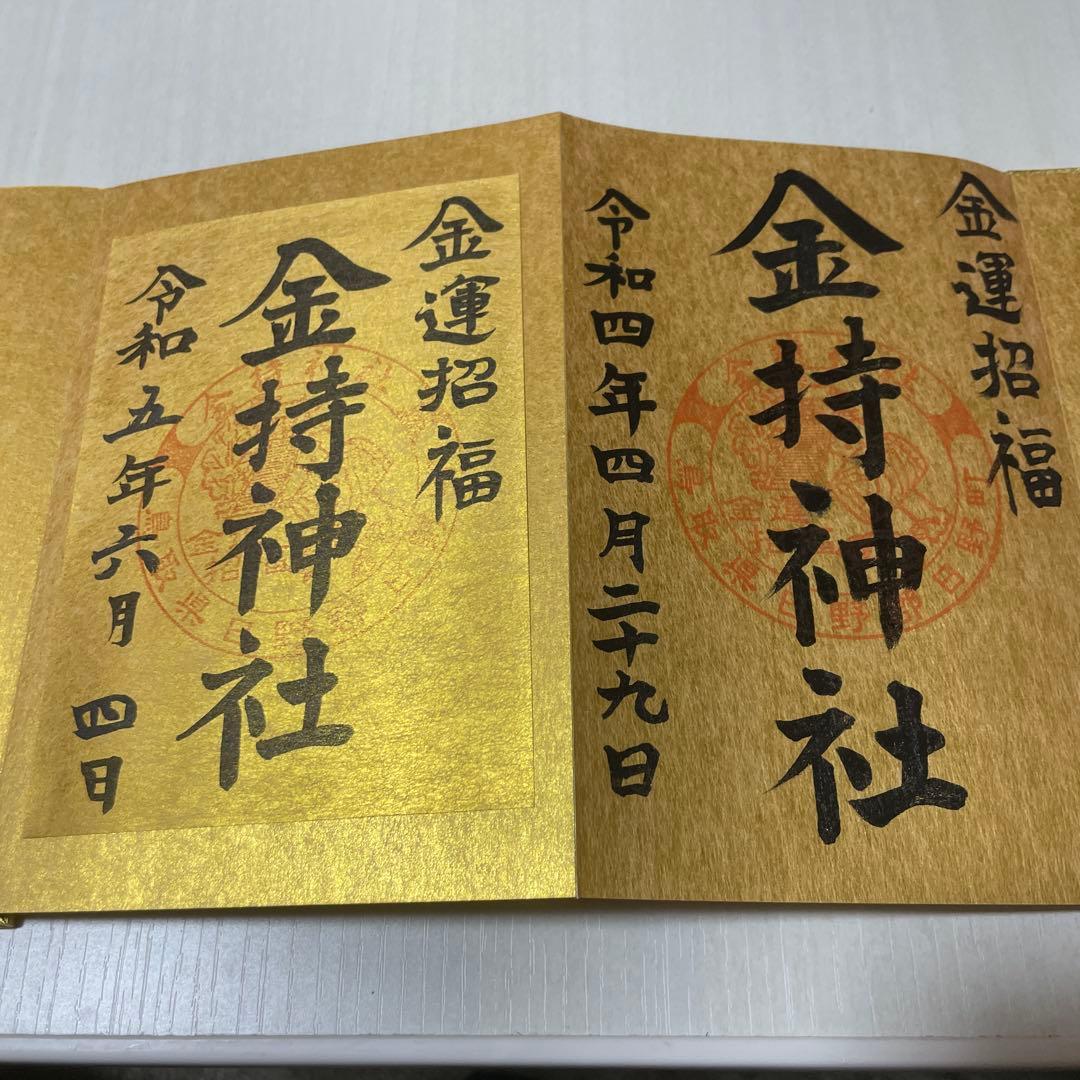 金運招福
金持神社
令和四年四月二十九日
金運招福
金持神社
令和五年六月 四日